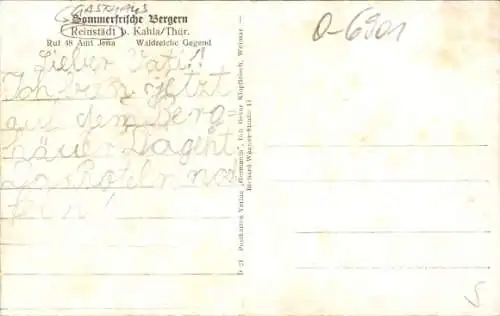 GASTHAUS
Sommerfrische Bergern
Reinstädt b. Kahla/Thür.
Ruf 48 Amt Jena Waldreiche Gegend
O-6901
Lieber Vati!
Ich bin jetzt
auf dem Berg=
Da geht
D 21 Postkarten-Verlag „Germania“, Inh. Georg Klopfleisch, Weimar —
Richard Wagner-Straße 13
S